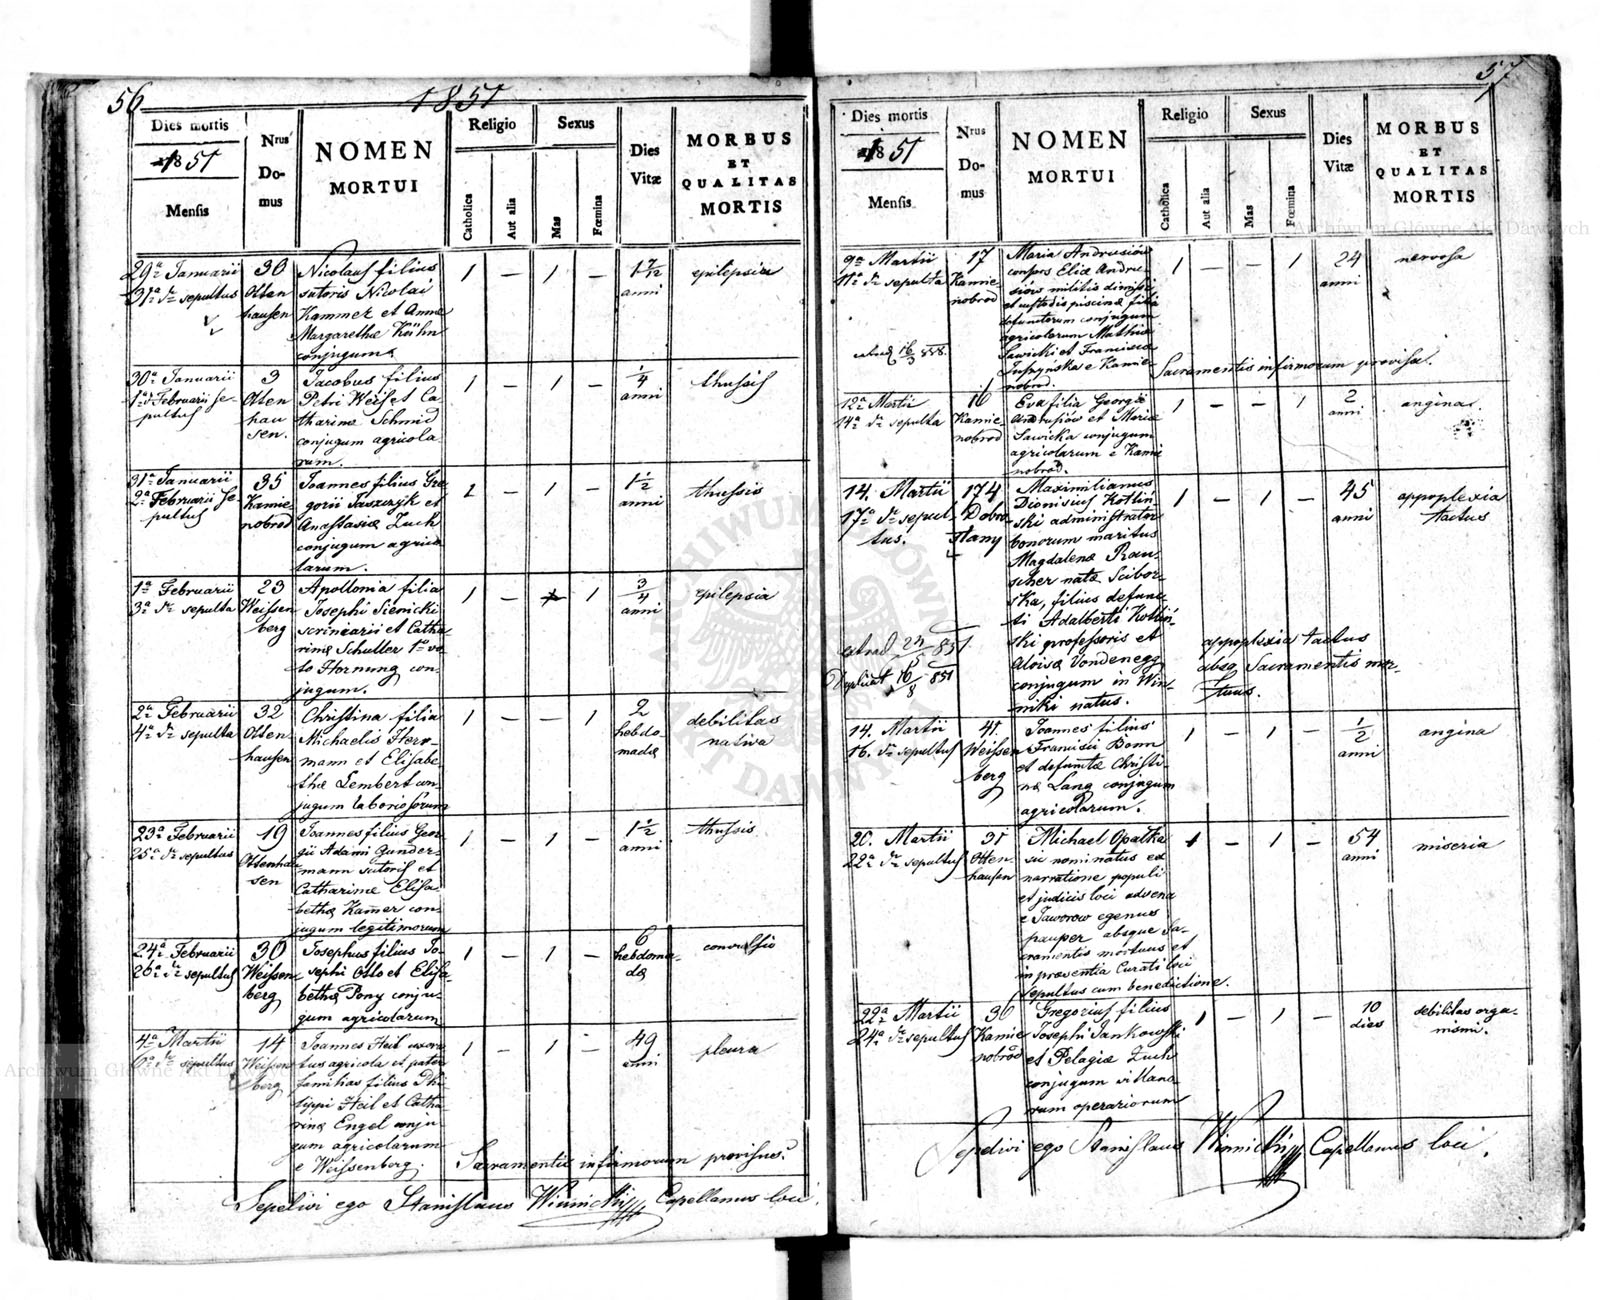 56
1851
Dies mortis
1851
Mensis
Nrus
Do-
mus
NOMEN
MORTUI
Religio
Catholica
Aut alia
Sexus
Mas
Fœmina
Dies
Vitæ
MORBUS
ET
QUALITAS
MORTIS
29a Januarii
31a sepultus
30
Otten
hausen
Nicolaus filius
sutoris Nicolai
Kammer et Annæ
Margarethæ Kühn
conjugum
1 — 1 —
1 7/12
anni
epilepsia
30a Januarii
1a Februarii se-
pultus
3
Otten
hau
sen.
Jacobus filius
Petri Weiss et Ca
tharinæ Schmid
conjugum agricola
rum.
1 — 1 —
1/4
anni
thussis
31a Januarii
2a Februarii se-
pultus
35
Kamie
nobrod
Joannes filius Gre
gorii Taszczyk et
Anastasiæ Zuck
conjugum agrico
larum.
1 — 1 —
1 1/2
anni
thussis
1a Februarii
3a sepulta
23
Weissen
berg
Apollonia filia
Josephi Sienicki
scriniarii et Catha
rinæ Schuller 1o vo
to Hornung con-
jugum.
1 — 1
3/4
anni
epilepsia
2a Februarii
4a sepulta
32
Otten
hausen
Christina filia
Michaelis Herr-
mann et Elisabe
thæ Lembert con
jugum laboriosorum
1 — — 1
2
hebdo
madæ
debilitas
nativa
23a Februarii
25a sepultus
19
Ottenhau
sen
Joannes filius Geor-
gii Adami Gunder-
mann sutoris et
Catharinæ Elisa-
bethæ Kamer con-
jugum legitimorum
1 — 1 —
1 1/2
anni
thussis
24a Februarii
26a sepultus
30
Weissen
berg
Josephus filius Jo-
sephi Otto et Elisa-
bethæ Pony conju-
gum agricolarum
1 — 1 —
6
hebdoma
dæ
convulsio
4a Martii
6a sepultus
14
Weissen
berg
Joannes Heil uxora
tus agricola et pater
familias filius Phi
lippi Heil et Catha-
rinæ Engel conju
gum agricolarum
e Weissenberg.
1 — 1 —
49
anni
pleura
Sacramentis infirmorum provisus.
Sepelivi ego Stanislaus Winnicki Capellanus loci.
57
Dies mortis
1851
Mensis
Nrus
Do-
mus
NOMEN
MORTUI
Religio
Catholica
Aut alia
Sexus
Mas
Fœmina
Dies
Vitæ
MORBUS
ET
QUALITAS
MORTIS
9a Martii
11a sepulta
17
Kamie-
nobrod
Maria Andrusiów
consors Eliæ Andru-
siów militis dimissi
et custodis piscinæ filia
defunctorum conjugum
agricolarum Mathiæ
Sawicki et Franciscæ
e Kamie-
nobrod.
1 — — 1
24
anni
nervosa
Sacramentis infirmorum provisa.
12a Martii
14a sepulta
16
Kamie
nobrod
Eva filia Georgii
Andrusiów et Mariæ
Sawicka conjugum
agricolarum e Kamie
nobrod.
1 — — 1
2
anni
angina.
14. Martii
17a sepul-
tus.
174
Dobro
stany
Maximilianus
Dionisius Kotliń
ski administrator
bonorum maritus
Magdalenæ Rau
scher natæ Scibor-
ska, filius defunc-
ti Adalberti Kotliń-
ski professoris et
Aloisæ Vondenegg
conjugum in Win-
niki natus.
1 — 1 —
45
anni
appoplexia
tactus
appoplexia tactus
absq Sacramentis mor-
tuus.
14. Martii
16. sepultus
41.
Weissen
berg
Joannes filius
Francisci Bonn
et defunctæ Christi-
næ Lang conjugum
agricolarum.
1 — 1 —
1/2
anni
angina
20. Martii
22a sepultus
31
Otten-
hausen
Michael Opałka
sic nominatus ex
narratione populi
et judicis loci advena
e Jaworow egenus
pauper absque Sa-
cramentis mortuus et
in præsentia Curati loci
sepultus cum benedictione.
1 — 1 —
54
anni
miseria
22a Martii
24a sepultus
36
Kamie
nobrod
Gregorius filius
Josephi Jankowski
et Pelagiæ Zuck
conjugum villano
rum operariorum
1 — 1 —
10
dies
debilitas orga-
nismi.
Sepelivi ego Stanislaus Winnicki Capellanus loci.
Archiwum Główne Akt Dawnych
Archiwum Główne Akt Dawnych
ARCHIWUM GŁÓWNE AKT DAWNYCH